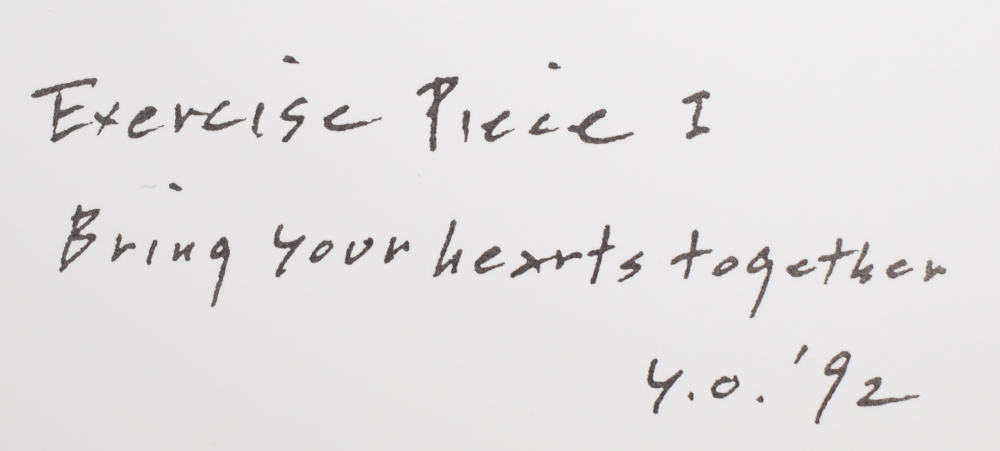 Exercise Piece I
Bring your hearts together
y.o. '92